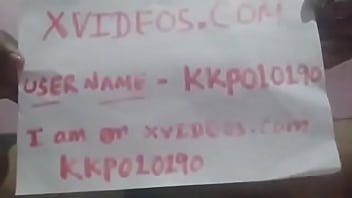 XVIDEOS.COM
USER NAME - KKP010190
I am on XVIDEOS.com
KKP010190